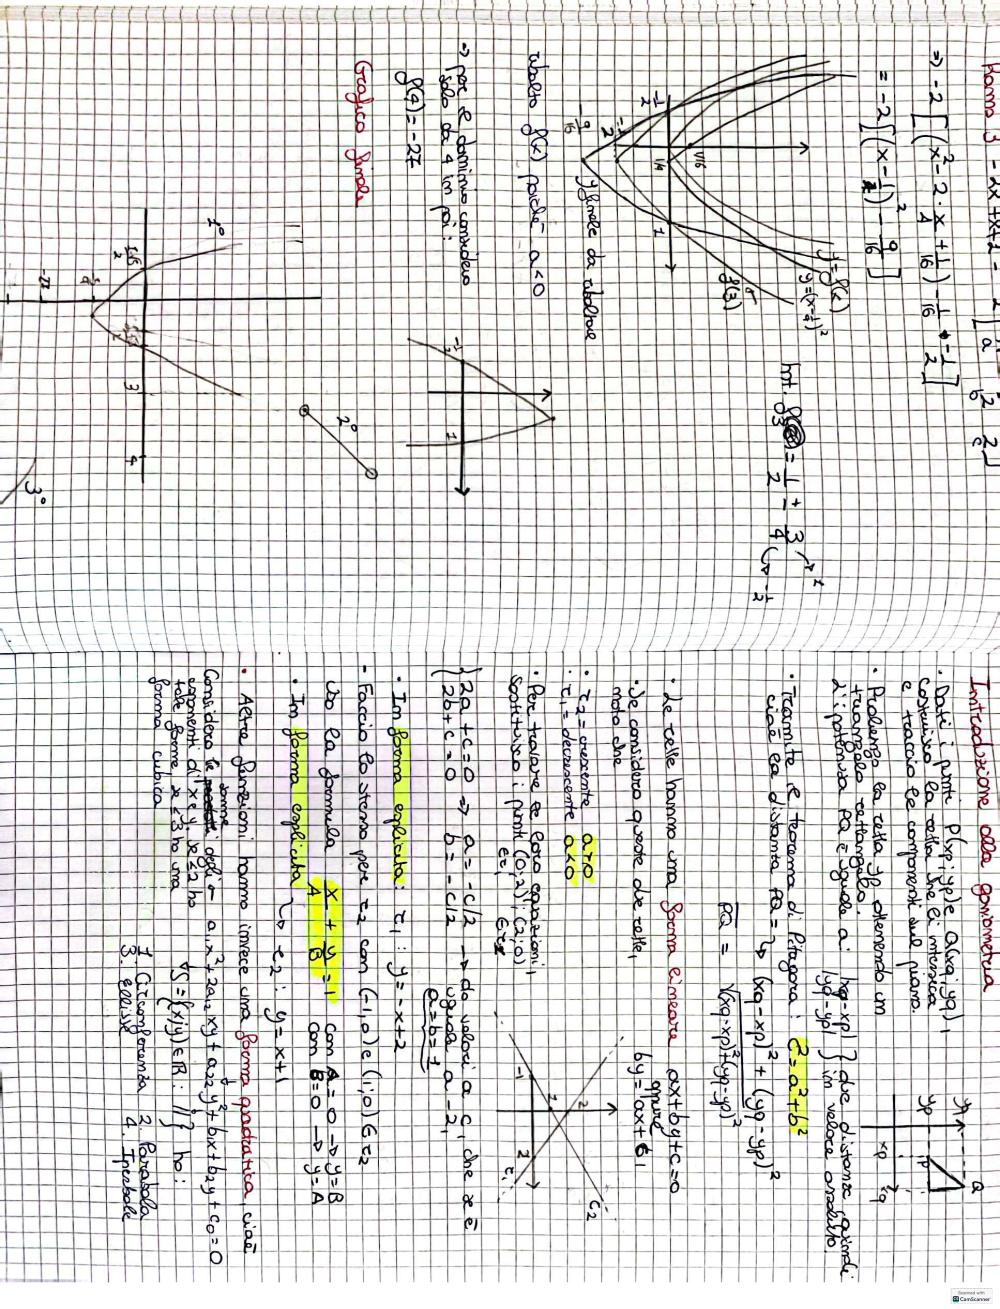 Ramo 3 - 2x² + x + 1 =
=> -2 [(x² - 2 · x/4 + 1/16) - 1/16 - 1/2]
= -2 [(x - 1/4)² - 9/16]
Int. f3 = 1/2 ± 3/4 → 1
→ -1/2
1/16
1/4
-1/2
1
-1/2
-9/16
y = f(x)
y = (x - 1/4)²
f(3)
y finale da ribaltare
ribalto f(x) poiché a < 0
=> per il dominio considero
solo da 4 in poi:
f(4) = -27
-1/2
1
Grafico finale
1°
2°
3°
3
4
-27
Introduzione alla goniometria
· Dati i punti P(xp; yp) e Q(xq; yq),
costruisco la retta che li interseca
e traccio le componenti sul piano.
· Prolungo la retta yp ottenendo un
triangolo rettangolo.
L'ipotenusa PQ è uguale a: |xq - xp|
|yq - yp| } due distanze quindi
in valore assoluto.
· Tramite il teorema di Pitagora: c² = a² + b²
cioè la distanza PQ = → (xq - xp)² + (yq - yp)²
PQ = √(xq - xp)² + (yq - yp)²
yp
P
Q
xp
xq
· Le rette hanno una forma lineare ax + by + c = 0
oppure
by = ax + c,
· Se considero queste due rette,
noto che
· r2 = crescente a > 0
· r1 = decrescente a < 0
· Per trovare le loro equazioni,
sostituisco i punti (0;2); (2;0)
∈ r1
-1
1
2
2
r1
r2
{ 2a + c = 0 => a = -c/2 → do valori a c, che se è
{ 2b + c = 0 b = -c/2 uguale a -2,
a = b = 1
· In forma esplicita: r1: y = -x + 2
- Faccio lo stesso per r2 con (-1,0) e (1,0) ∈ r2
Uso la formula x/A + y/B = 1 con A = 0 → y = B
con B = 0 → y = A
· In forma esplicita → r2: y = x + 1
· Altre funzioni hanno invece una forma quadratica cioè
a11x² + 2a12xy + a22y² + b1x + b2y + c0 = 0
Considero le somme degli
esponenti di x e y, se ≤ 2 ho
tale forma, se ≤ 3 ho una
forma cubica
S = {(x;y) ∈ R: // } ho:
1. Circonferenza 2. Parabola
3. Ellisse 4. Iperbole
Scanned with
CamScanner